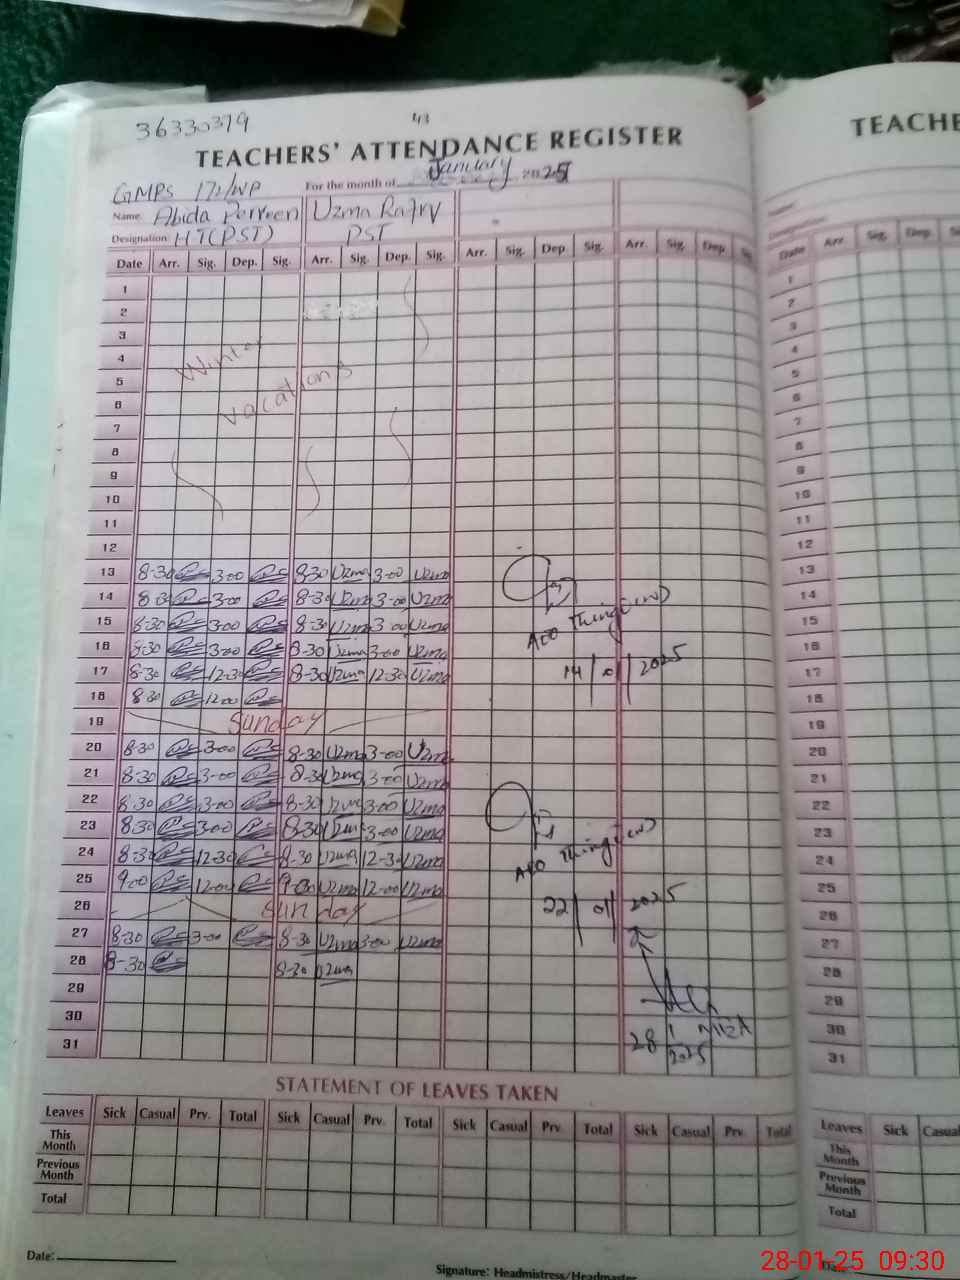 36330379
43
TEACHERS' ATTENDANCE REGISTER
For the month of January 2025
GMPS 172/WP
Name: Abida Perveen Uzma Rafry
Designation: HT(PST) PST
Date Arr. Sig. Dep. Sig. Arr. Sig. Dep. Sig. Arr. Sig. Dep Sig. Arr. Sig. Dep
1
2
3
4
5
6
7
8
9
10
11
12
Winter
vacations
13 8-30 3-00 8-30 Uzma 3-00 Uzma
14 8-30 3-00 8-30 Uzma 3-00 Uzma
15 8-30 3-00 8-30 Uzma 3-00 Uzma
16 8-30 3-00 8-30 Uzma 3-00 Uzma
17 8-30 12-30 8-30 Uzma 12-30 Uzma
18 8-30 12-00
19 Sunday
20 8-30 3-00 8-30 Uzma 3-00 Uzma
21 8-30 3-00 8-30 Uzma 3-00 Uzma
22 8-30 3-00 8-30 Uzma 3-00 Uzma
23 8-30 3-00 8-30 Uzma 3-00 Uzma
24 8-30 12-30 8-30 Uzma 12-30 Uzma
25 9-00 12-00 9-00 Uzma 12-00 Uzma
26 Sunday
27 8-30 3-00 8-30 Uzma 3-00 Uzma
28 8-30 8-30 Uzma
29
30
31
AEO Thingi(W)
14/01/2025
AEO Thingi(W)
22/01/2025
MEA
28 1 2025
STATEMENT OF LEAVES TAKEN
Leaves Sick Casual Prv. Total Sick Casual Prv. Total Sick Casual Prv. Total Sick Casual Prv. Total
This Month
Previous Month
Total
Date:
Signature: Headmistress/Headmaster
TEACHE
Date Arr. Sig. Dep.
1
2
3
4
5
6
7
8
9
10
11
12
13
14
15
16
17
18
19
20
21
22
23
24
25
26
27
28
29
30
31
Leaves Sick Casual
This Month
Previous Month
Total
28-01-25 09:30